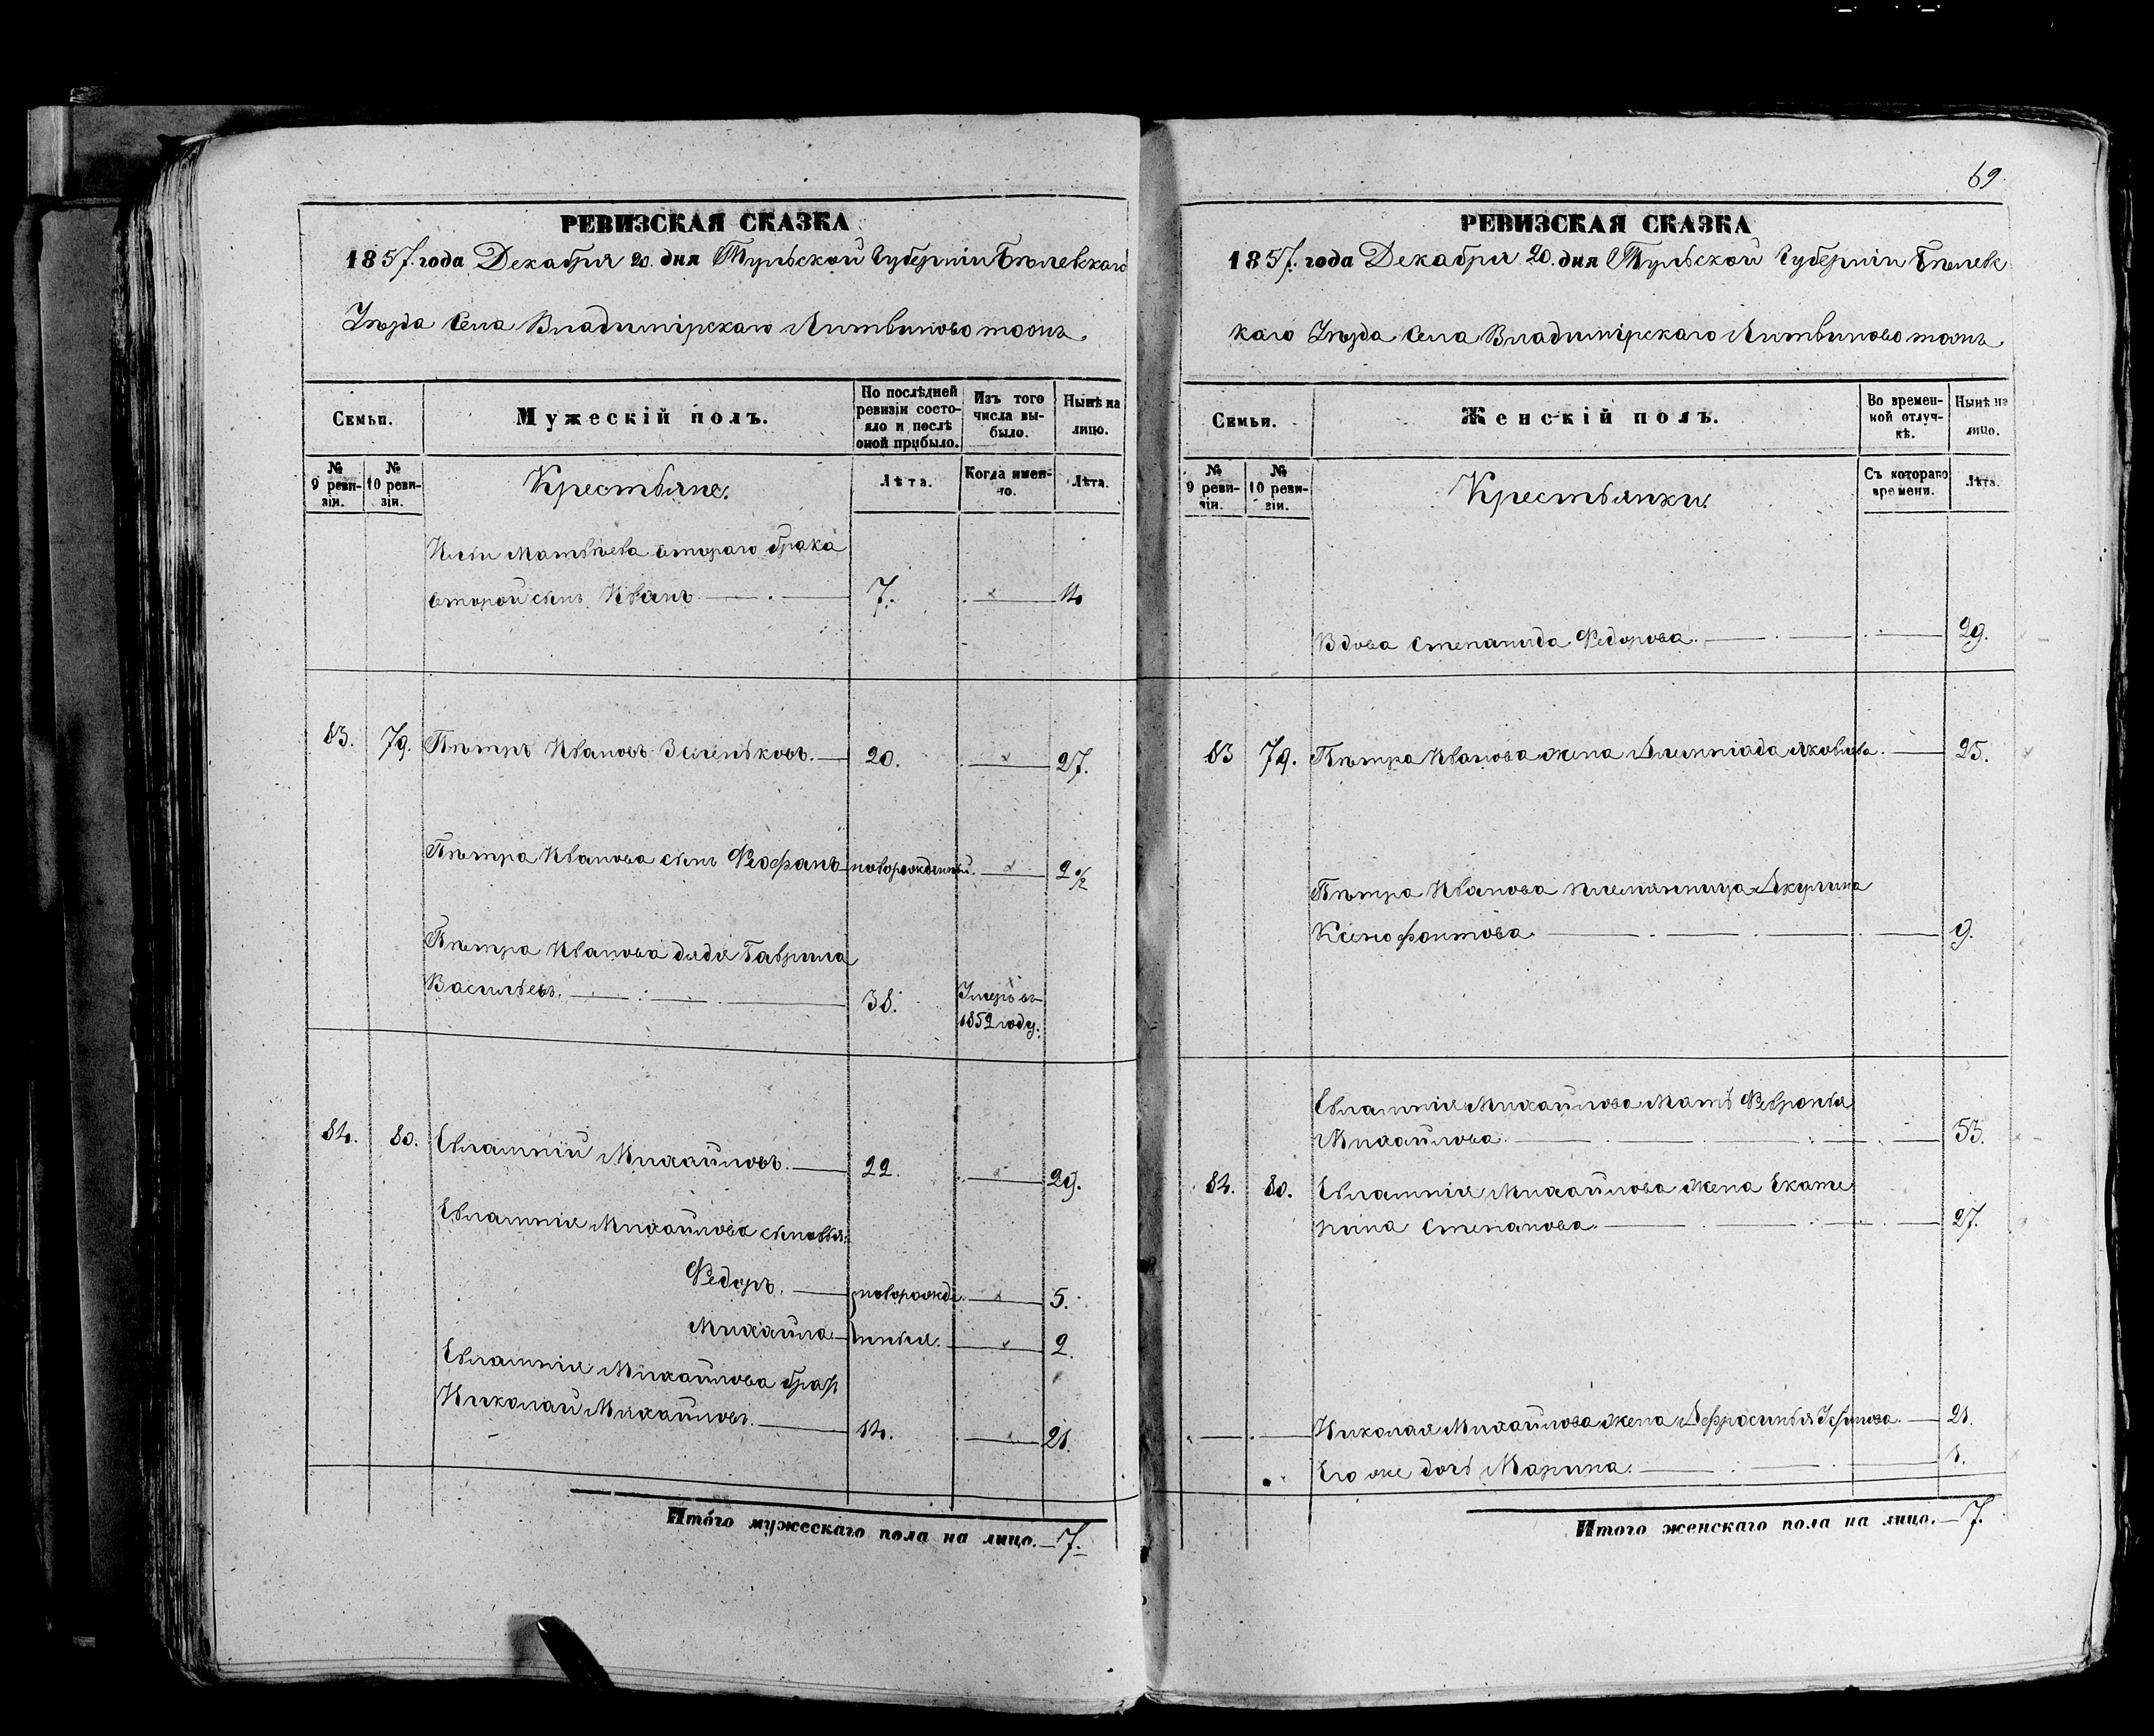 РЕВИЗСКАЯ СКАЗКА
1857. года Декабря 20. дня Тульской Губерніи Бѣлевскаго
Уѣзда Села Владимірскаго Литвиново тожъ
Семьи.
Мужескій полъ.
По послѣдней ревизіи состояло и послѣ оной прибыло.
Изъ того числа выбыло.
Нынѣ на лицо.
№ 9 ревизіи.
№ 10 ревизіи.
Крестьяне.
Лѣта.
Когда именно.
Лѣта.
Матвѣева втораго брака
второй сынъ Иванъ 7. 14
83. 79. Пѣтръ Ивановъ Зеленьковъ. 20. 27.
Пѣтра Иванова сынъ Феофанъ новорожденный. 2
Пѣтра Иванова дядя Гаврила
Васильевъ. 38. Умеръ въ 1852 году.
84. 80. Евлампій Михайловъ. 22. 29.
Евлампія Михайлова сыновья:
Федоръ. новорожде 5.
Михайла нныя. 2.
Евлампія Михайлова братъ
Николай Михайловъ. 14. 21.
Итого мужескаго пола на лицо. 7.
69.
РЕВИЗСКАЯ СКАЗКА
1857. года Декабря 20. дня Тульской Губерніи Бѣлевс
каго Уѣзда Села Владимірскаго Литвиново тожъ
Семьи.
Женскій полъ.
Во временной отлучкѣ.
Нынѣ на лицо.
№ 9 ревизіи.
№ 10 ревизіи.
Крестьянки.
Съ котораго времени.
Лѣта.
Вдова Степанида Федорова. 29.
83 79. Пѣтра Иванова жена Алемпіада Яковлева. 25.
Пѣтра Иванова племянница Акулина
Ксенофонтова. 9.
Евлампія Михайлова Мать Февронья
Михайлова. 53.
84. 80. Евлампія Михайлова жена Екате
рина Степанова. 27.
Николая Михайлова жена Афросинья Уфимова. 21.
Его же дочь Марина. 1.
Итого женскаго пола на лицо. 7.